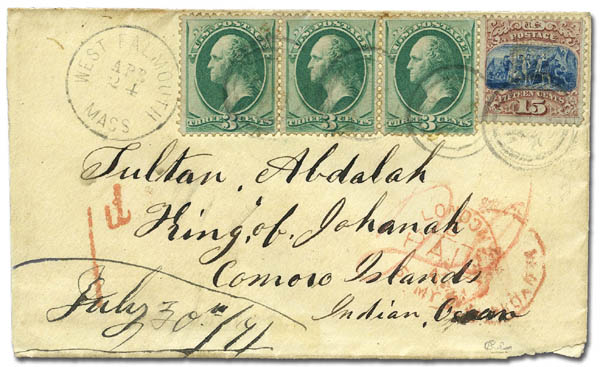 WEST FALMOUTH
APR
24
MASS
U.S. POSTAGE
THREE 3 CENTS
U.S. POSTAGE
THREE 3 CENTS
U.S. POSTAGE
THREE 3 CENTS
POSTAGE
FIFTEEN CENTS
15
Sultan, Abdalah
King, of, Johanah
Comoro Islands
Indian, Ocean
July 30th/74
LONDON
PAID